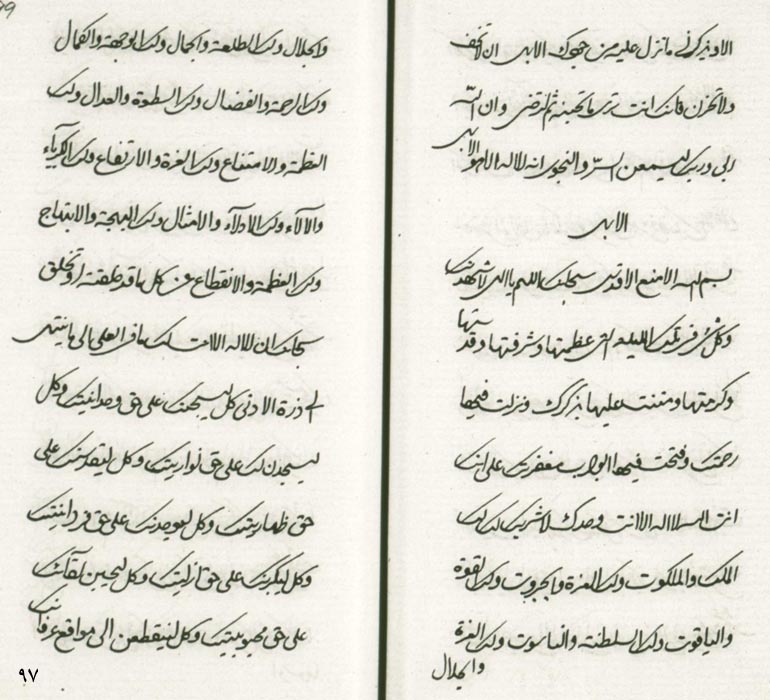 الا وذكرني ما نزل عليه من جودك الابهى ان لا تخف
ولا تحزن فانك انت ترى ما تحبنه ثم لترضى وان الله
ربي وربك ليسمعن السر والنجوى انه لا اله الا هو الابهى
الابهى
بسم الله الامنع الاقدس سبحانك اللهم يا الهي لاشهدنك
وكل شيء في تلك الليلة التي عظمتها وشرفتها وقدستها
وكرمتها ومننت عليها بذكرك ونزلت فيها
رحمتك وفتحت فيها ابواب مغفرتك على انك
انت الله لا اله الا انت وحدك لا شريك لك لك
الملك والملكوت ولك العزة والجبروت ولك القوة
والياقوت ولك السلطنة والناسوت ولك العزة
والجلال
والجلال ولك الطلعة والجمال ولك الوجهة والكمال
ولك الرحمة والفضال ولك السطوة والعدال ولك
العظمة والامتناع ولك العزة والارتفاع ولك الكبرياء
والآلاء ولك الادلاء والامثال ولك البهجة والابتهاج
ولك العظمة والانقطاع من كل ما قد خلقته او تخلق
سبحانك ان لا اله الا انت لك ما في العلى الى ما ينتهي
الى ذرة الادنى كل ليسبحنك على حق وحدانيتك وكل
ليسجدن لك على حق نواريتك وكل ليقدسنك على
حق ظهاريتك وكل ليوحدنك على حق فردانيتك
وكل ليكبرنك على حق ازليتك وكل ليحبن لقائك
على حق محبوبيتك وكل لينقطعن الى مواقع عرفانك
٩٧